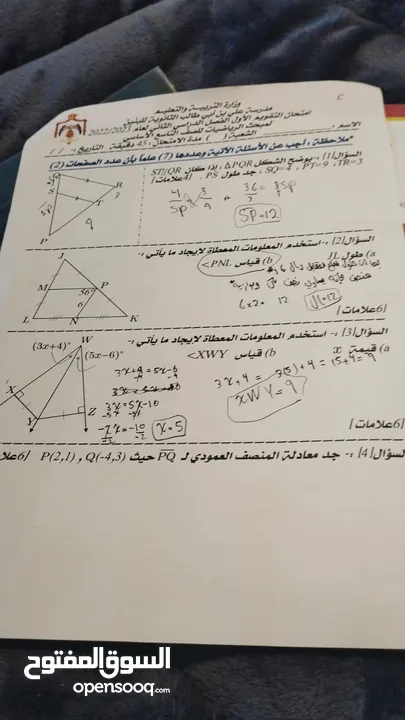 وزارة التربية والتعليم
مدرسة علي بن أبي طالب الثانوية للبنين
امتحان التقويم الأول الفصل الدراسي الثاني لعام 2022/2023
لمبحث الرياضيات للصف التاسع الأساسي
الاسم : الشعبة ( ) مدة الامتحان : 45 دقيقة التاريخ : / /
*ملاحظة : أجب عن الأسئلة الآتية وعددها (7) علما بأن عدد الصفحات (2)
السؤال[1] :- يوضح الشكل ΔPQR ، إذا كان ST//QR
TR=3 ، PT=9 ، SQ=4 ، جد طول PS . [4علامات]
S
R
T
P
9
4/SP 3/9
36/3 = 3SP/3
SP=12
السؤال[2] :- استخدم المعلومات المعطاة لإيجاد ما يأتي :-
a) طول JL b) قياس PNL>
J
M
P
56°
6
L
N
K
6x2= 12
JL=12
[6علامات]
السؤال[3] :- استخدم المعلومات المعطاة لإيجاد ما يأتي :-
a) قيمة x b) قياس XWY>
(3x+4)°
W
(5x-6)°
X
Y
Z
3x+4=5x-6
3x=5x-10
-2x=-10
x=5
3x+4= 3(5)+4= 15+4=9
XWY=9
[6علامات]
السؤال[4] :- جد معادلة المنصف العمودي لـ PQ حيث P(2,1) , Q(-4,3) [6علا
السوق المفتوح
opensooq.com